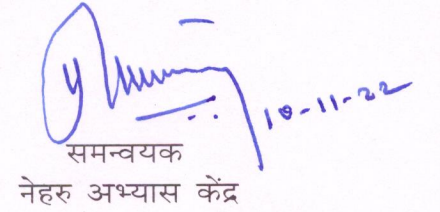 10-11-22
समन्वयक
नेहरु अभ्यास केंद्र